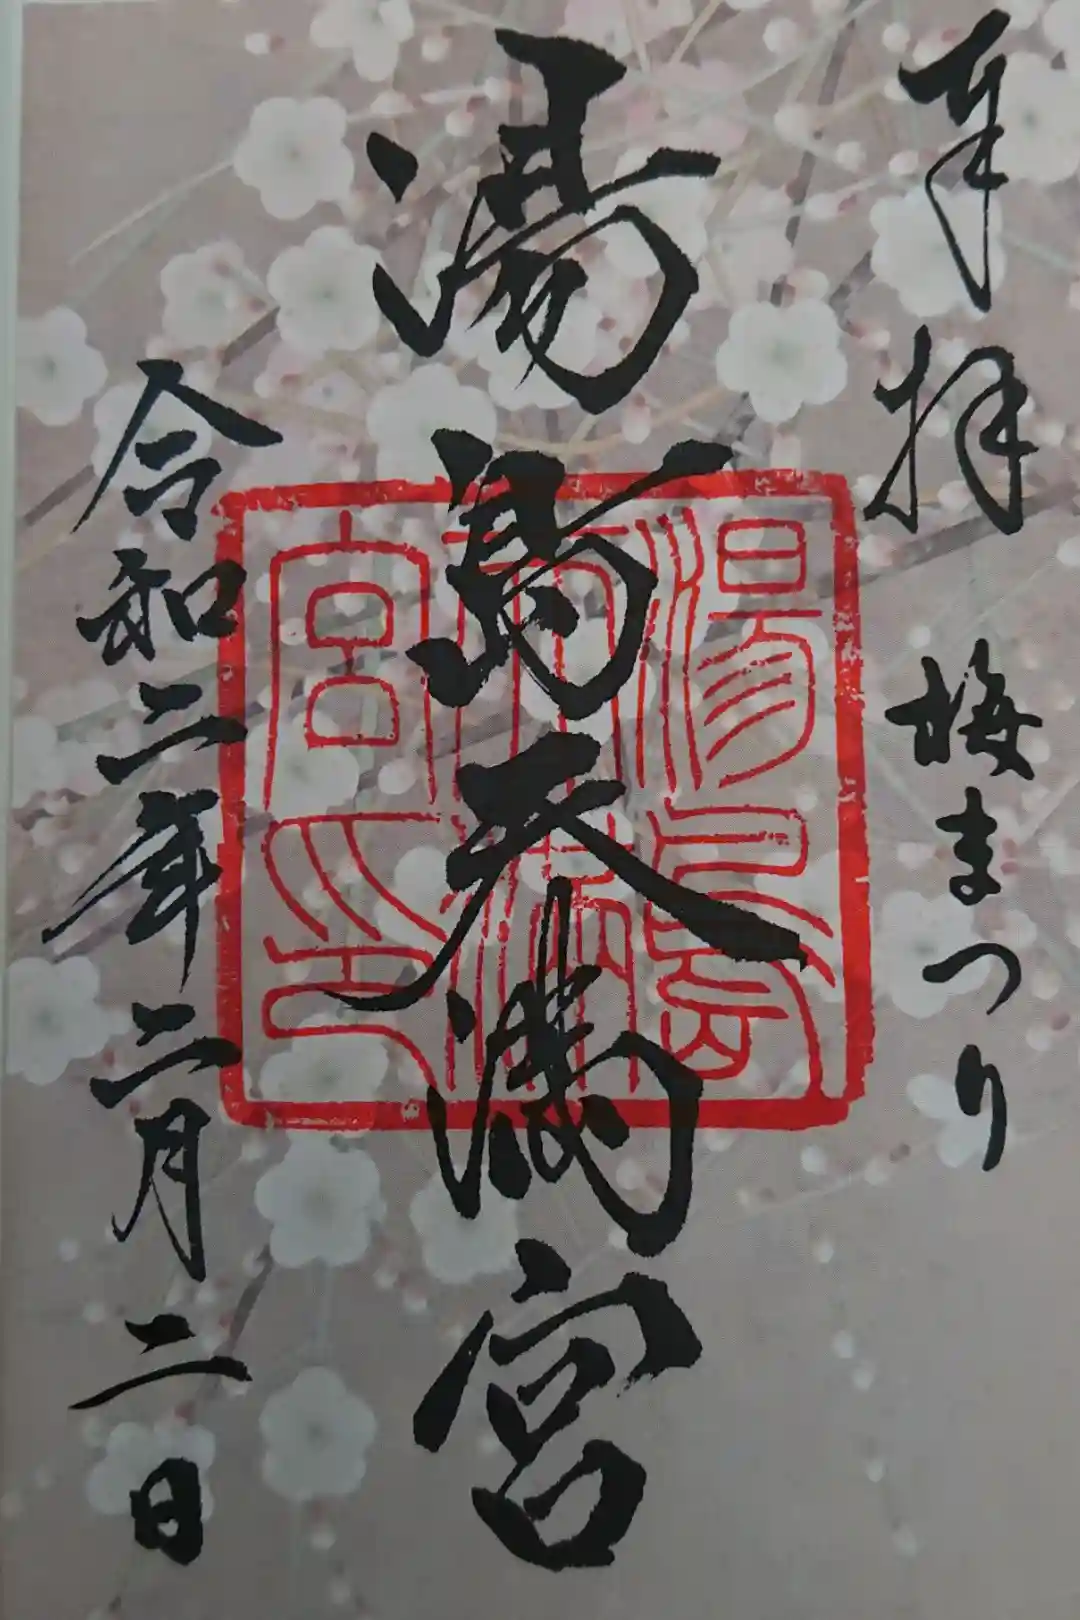 奉拝 梅まつり
湯島天満宮
令和二年二月二日
湯島
天満
宮印